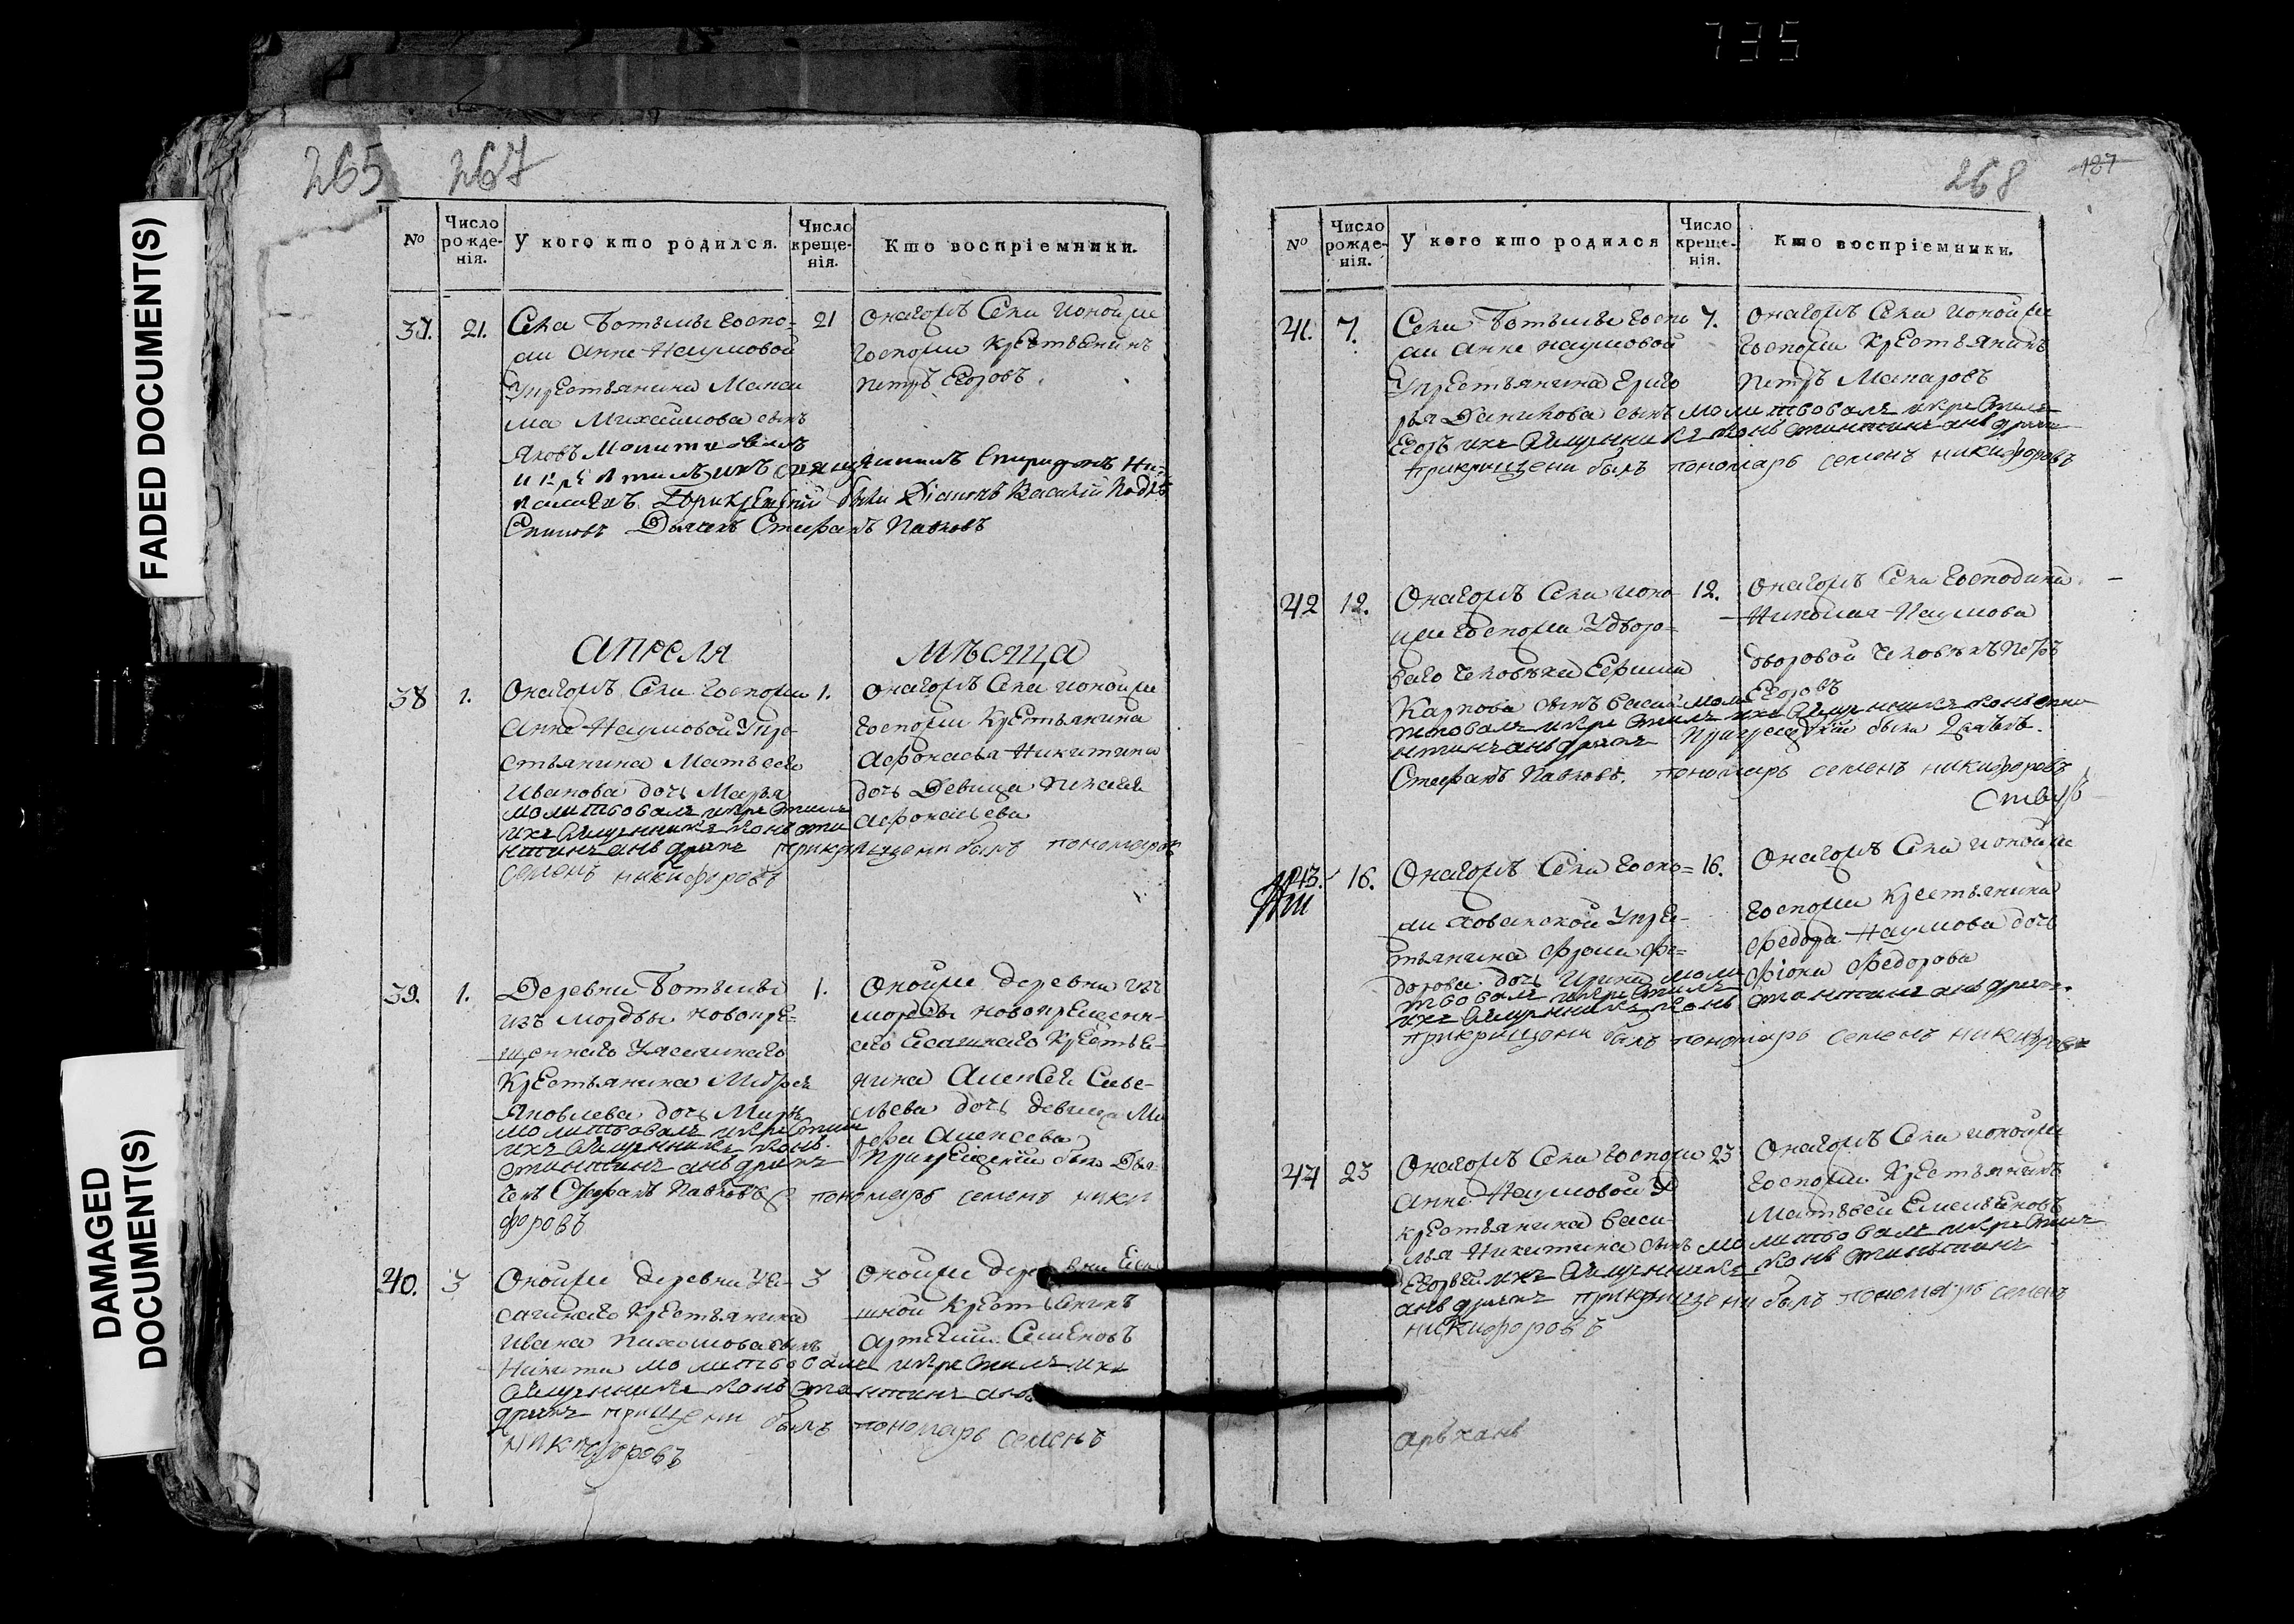 735
FADED DOCUMENT(S)
DAMAGED
DOCUMENT(S)
265 267
№
Число рожденія.
У кого кто родился.
Число крещенія.
Кто воспріемники.
37. 21.
Села Ботьмы госпо-
жи Анне Наумовой
Укрестьянина Макси
ма Михаилова сынъ
Яковъ Молитвовалъ
и крестилъ ихъ священникъ Спиридонъ Ни-
колаевъ При крещеніи были Діаконъ Василій
Дьячекъ Стефанъ Павловъ
21
Онагожъ Села ионойже
госпожи крестьенинъ
Петръ Егоровъ.
апреля мѣсяца
38 1.
Онагожъ Села госпожи
Анне Наумовой Укре-
стьянина Матвея
Иванова дочь Марья
молитвовалъ икрестилъ
ихъ священникъ конъста
нтинъ анъдреевъ прикрещени былъ пономарь
семенъ никифоровъ
1.
онагожъ Села ионойже
госпожи крестьянина
Афонасья Никитина
дочь Девица Пелагея
Афонасьева
39. 1.
Деревни Ботьмы
изъ мордвы новокре-
щеннаго Уясашнаго
крестьянина
Яковлева дочь
молитвовалъ икрестилъ
ихъ священникъ конъ-
стантинъ анъдреевъ
чекъ Стефанъ Павловъ пономарь семенъ ники
форовъ
1.
Онойже деревни изъ
мордвы новокрещенн-
аго Есашнаго крестье-
нина Алексея Саве-
льева дочь девица Ма
рефа Алексеева
Прикрещеніи былъ Дья-
40. 3
Онойже деревни Уя-
сашнаго крестьянина
Ивана сынъ
Никита молитвовалъ икрестилъ ихъ
священникъ конъстантинъ анъ
дреевъ прищени былъ пономарь семенъ
никифоровъ
3
Онойже деревни Еса
шной крестьенинъ
Артемий Семеновъ
268 127
№
Число рожденія.
У кого кто родился
Число крещенія.
Кто воспріемники.
41. 7.
Села Ботьмы госпо
жи Анне Наумовой
Укрестьянина Григо
рья Данилова сынъ молитвовалъ икрестилъ
Егоръ ихъ священникъ конъстантинъ анъдреевъ
прикрищени былъ пономарь семенъ никифоровъ
7.
Онагожъ Села ионойже
госпожи крестьянинъ
Петръ Макаровъ
42 12.
Онагожъ Села ионо-
йже госпожи Удворо-
ваго человека Ефима
Карпова сынъ Василий моли
твовалъ икрестилъ ихъ священникъ конъста
нтинъ анъдреевъ Прикрещеніи были Дьячекъ
Стефанъ Павловъ. пономарь семенъ никифоровъ
12.
Онагожъ Села господина
Николая Наумова
дворовой человекъ Петръ
Егоровъ
43. 16.
Онагожъ Села госпо-
жи Хованской Укре-
стьянина Фрола Фе-
дорова дочь Ирина моли
твовалъ икрестилъ
ихъ священникъ конъстантинъ анъдреевъ.
прикрищени былъ пономарь семенъ никифоровъ
16.
Онагожъ Села ионойже
госпожи крестьянина
Федора Наумова дочь
Фіона Федорова
44 23
Онагожъ Села госпожи
Анне Наумовой У
крестьянина Васи-
лья Никитина сынъ молитвовалъ икрестилъ
Егоръй ихъ священникъ конъстантинъ
анъдреевъ прикрищени былъ пономарь семенъ
никифоровъ
23
Онагожъ Села ионойже
госпожи крестьянинъ
Матвей Емельеновъ
архань